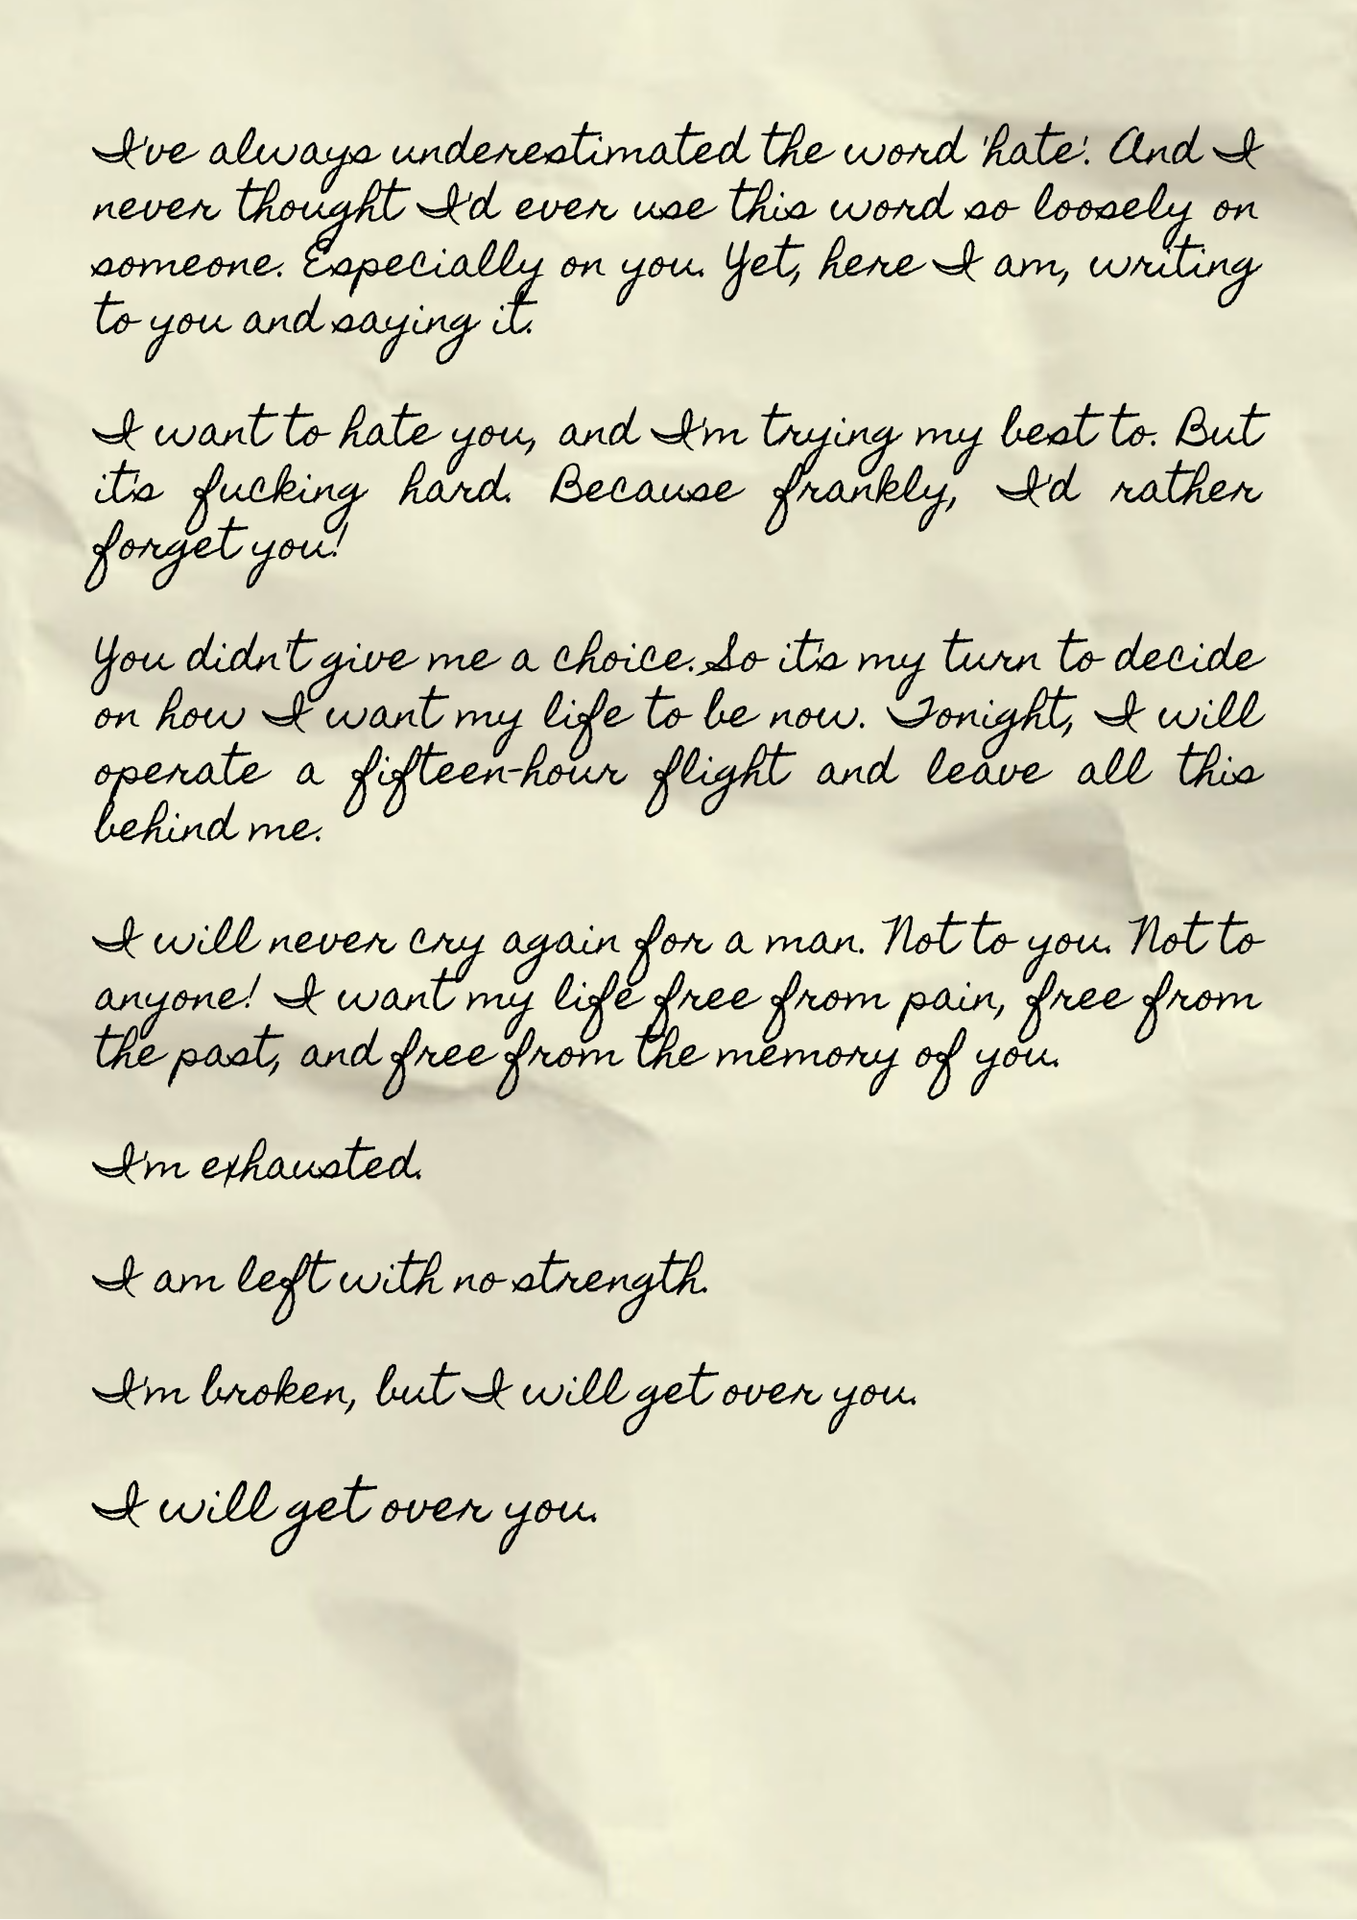 I've always underestimated the word 'hate'. And I
never thought I'd ever use this word so loosely on
someone. Especially on you. Yet, here I am, writing
to you and saying it.
I want to hate you, and I'm trying my best to. But
it's fucking hard. Because frankly, I'd rather
forget you!
You didn't give me a choice. So it's my turn to decide
on how I want my life to be now. Tonight, I will
operate a fifteen-hour flight and leave all this
behind me.
I will never cry again for a man. Not to you. Not to
anyone! I want my life free from pain, free from
the past, and free from the memory of you.
I'm exhausted.
I am left with no strength.
I'm broken, but I will get over you.
I will get over you.